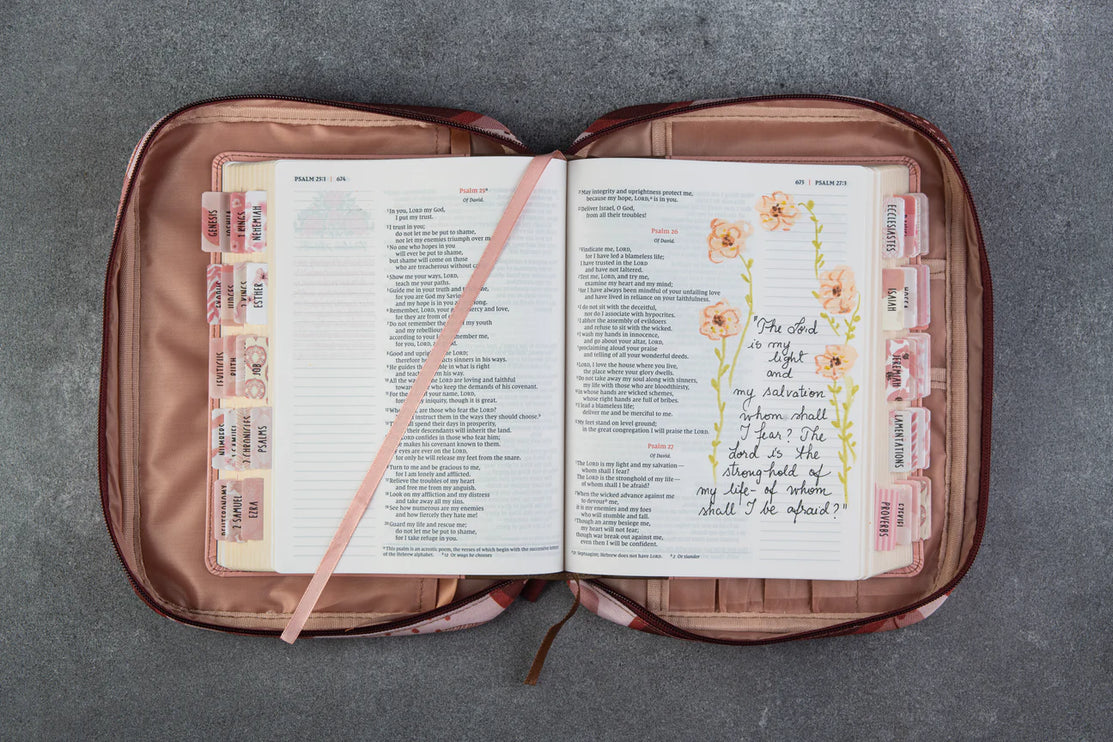 PSALM 25:1 | 674
Psalm 25
Of David.
In you, LORD my God,
I put my trust.
I trust in you;
do not let me be put to shame,
nor let my enemies triumph over
No one who hopes in you
will ever be put to shame,
but shame will come on those
who are treacherous without
Show me your ways, LORD,
teach me your paths.
Guide me in your truth and
for you are God my
and my hope is in you
Remember, LORD, your mercy and love,
for they are from of
Do not remember the my youth
and my rebellious
according to your remember me,
for you, LORD
Good and upright LORD;
therefore he sinners in his ways.
He guides the in what is right
and his way.
All the ways LORD are loving and faithful
toward who keep the demands of his covenant.
For the of your name, LORD,
my iniquity, though it is great.
Who, are those who fear the LORD?
instruct them in the ways they should choose.
spend their days in prosperity,
their descendants will inherit the land.
LORD confides in those who fear him;
he makes his covenant known to them.
eyes are ever on the LORD,
for only he will release my feet from the snare.
Turn to me and be gracious to me,
for I am lonely and afflicted.
Relieve the troubles of my heart
and free me from my anguish.
Look on my affliction and my distress
and take away all my sins.
See how numerous are my enemies
and how fiercely they hate me!
Guard my life and rescue me;
do not let me be put to shame,
for I take refuge in you.
This psalm is an acrostic poem, the verses of which begin with the successive letters
of the Hebrew alphabet. 12 Or ways he chooses
675 | PSALM 27:3
May integrity and uprightness protect me,
because my hope, LORD, is in you.
Deliver Israel, O God,
from all their troubles!
Psalm 26
Of David.
Vindicate me, LORD,
for I have led a blameless life;
I have trusted in the LORD
and have not faltered.
Test me, LORD, and try me,
examine my heart and my mind;
for I have always been mindful of your unfailing love
and have lived in reliance on your faithfulness.
I do not sit with the deceitful,
nor do I associate with hypocrites.
I abhor the assembly of evildoers
and refuse to sit with the wicked.
I wash my hands in innocence,
and go about your altar, LORD,
proclaiming aloud your praise
and telling of all your wonderful deeds.
LORD, I love the house where you live,
the place where your glory dwells.
Do not take away my soul along with sinners,
my life with those who are bloodthirsty,
in whose hands are wicked schemes,
whose right hands are full of bribes.
I lead a blameless life;
deliver me and be merciful to me.
My feet stand on level ground;
in the great congregation I will praise the LORD.
Psalm 27
Of David.
The LORD is my light and my salvation—
whom shall I fear?
The LORD is the stronghold of my life—
of whom shall I be afraid?
When the wicked advance against me
to devour me,
it is my enemies and my foes
who will stumble and fall.
Though an army besiege me,
my heart will not fear;
though war break out against me,
even then I will be confident.
21 Septuagint; Hebrew does not have LORD. 2 Or slander
"The Lord
is my
light
and
my salvation
whom shall
I fear? The
Lord is the
stronghold of
my life- of whom
shall I be afraid?"
GENESIS
JOSHUA
1 KINGS
NEHEMIAH
EXODUS
JUDGES
2 KINGS
ESTHER
LEVITICUS
RUTH
JOB
NUMBERS
1 SAMUEL
2 CHRONICLES
PSALMS
DEUTERONOMY
2 SAMUEL
EZRA
ECCLESIASTES
ISAIAH
HOSEA
JEREMIAH
LAMENTATIONS
PROVERBS